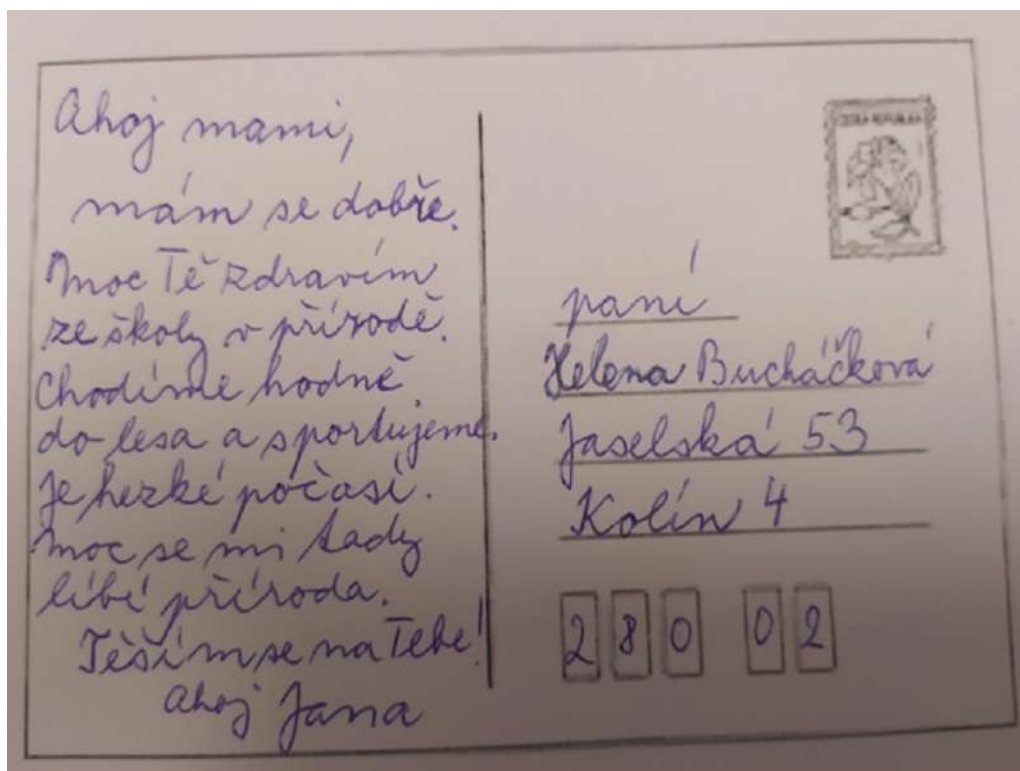 Ahoj mami,
mám se dobře.
Moc Tě zdravím
ze školy v přírodě.
Chodíme hodně
do lesa a sportujeme.
Je hezké počasí.
Moc se mi tady
líbí příroda.
Těším se na Tebe!
Ahoj Jana
ČESKÁ REPUBLIKA
paní
Helena Bucháčková
Jaselská 53
Kolín 4
280 02